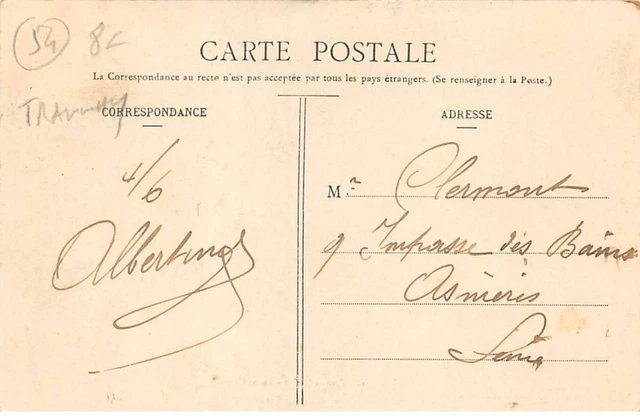 54 8€
CARTE POSTALE
La Correspondance au recto n'est pas acceptée par tous les pays étrangers. (Se renseigner à la Poste.)
CORRESPONDANCE
ADRESSE
4/6
Albertine
Mr Clermont
9 Impasse des Bains
Asnières
Seine